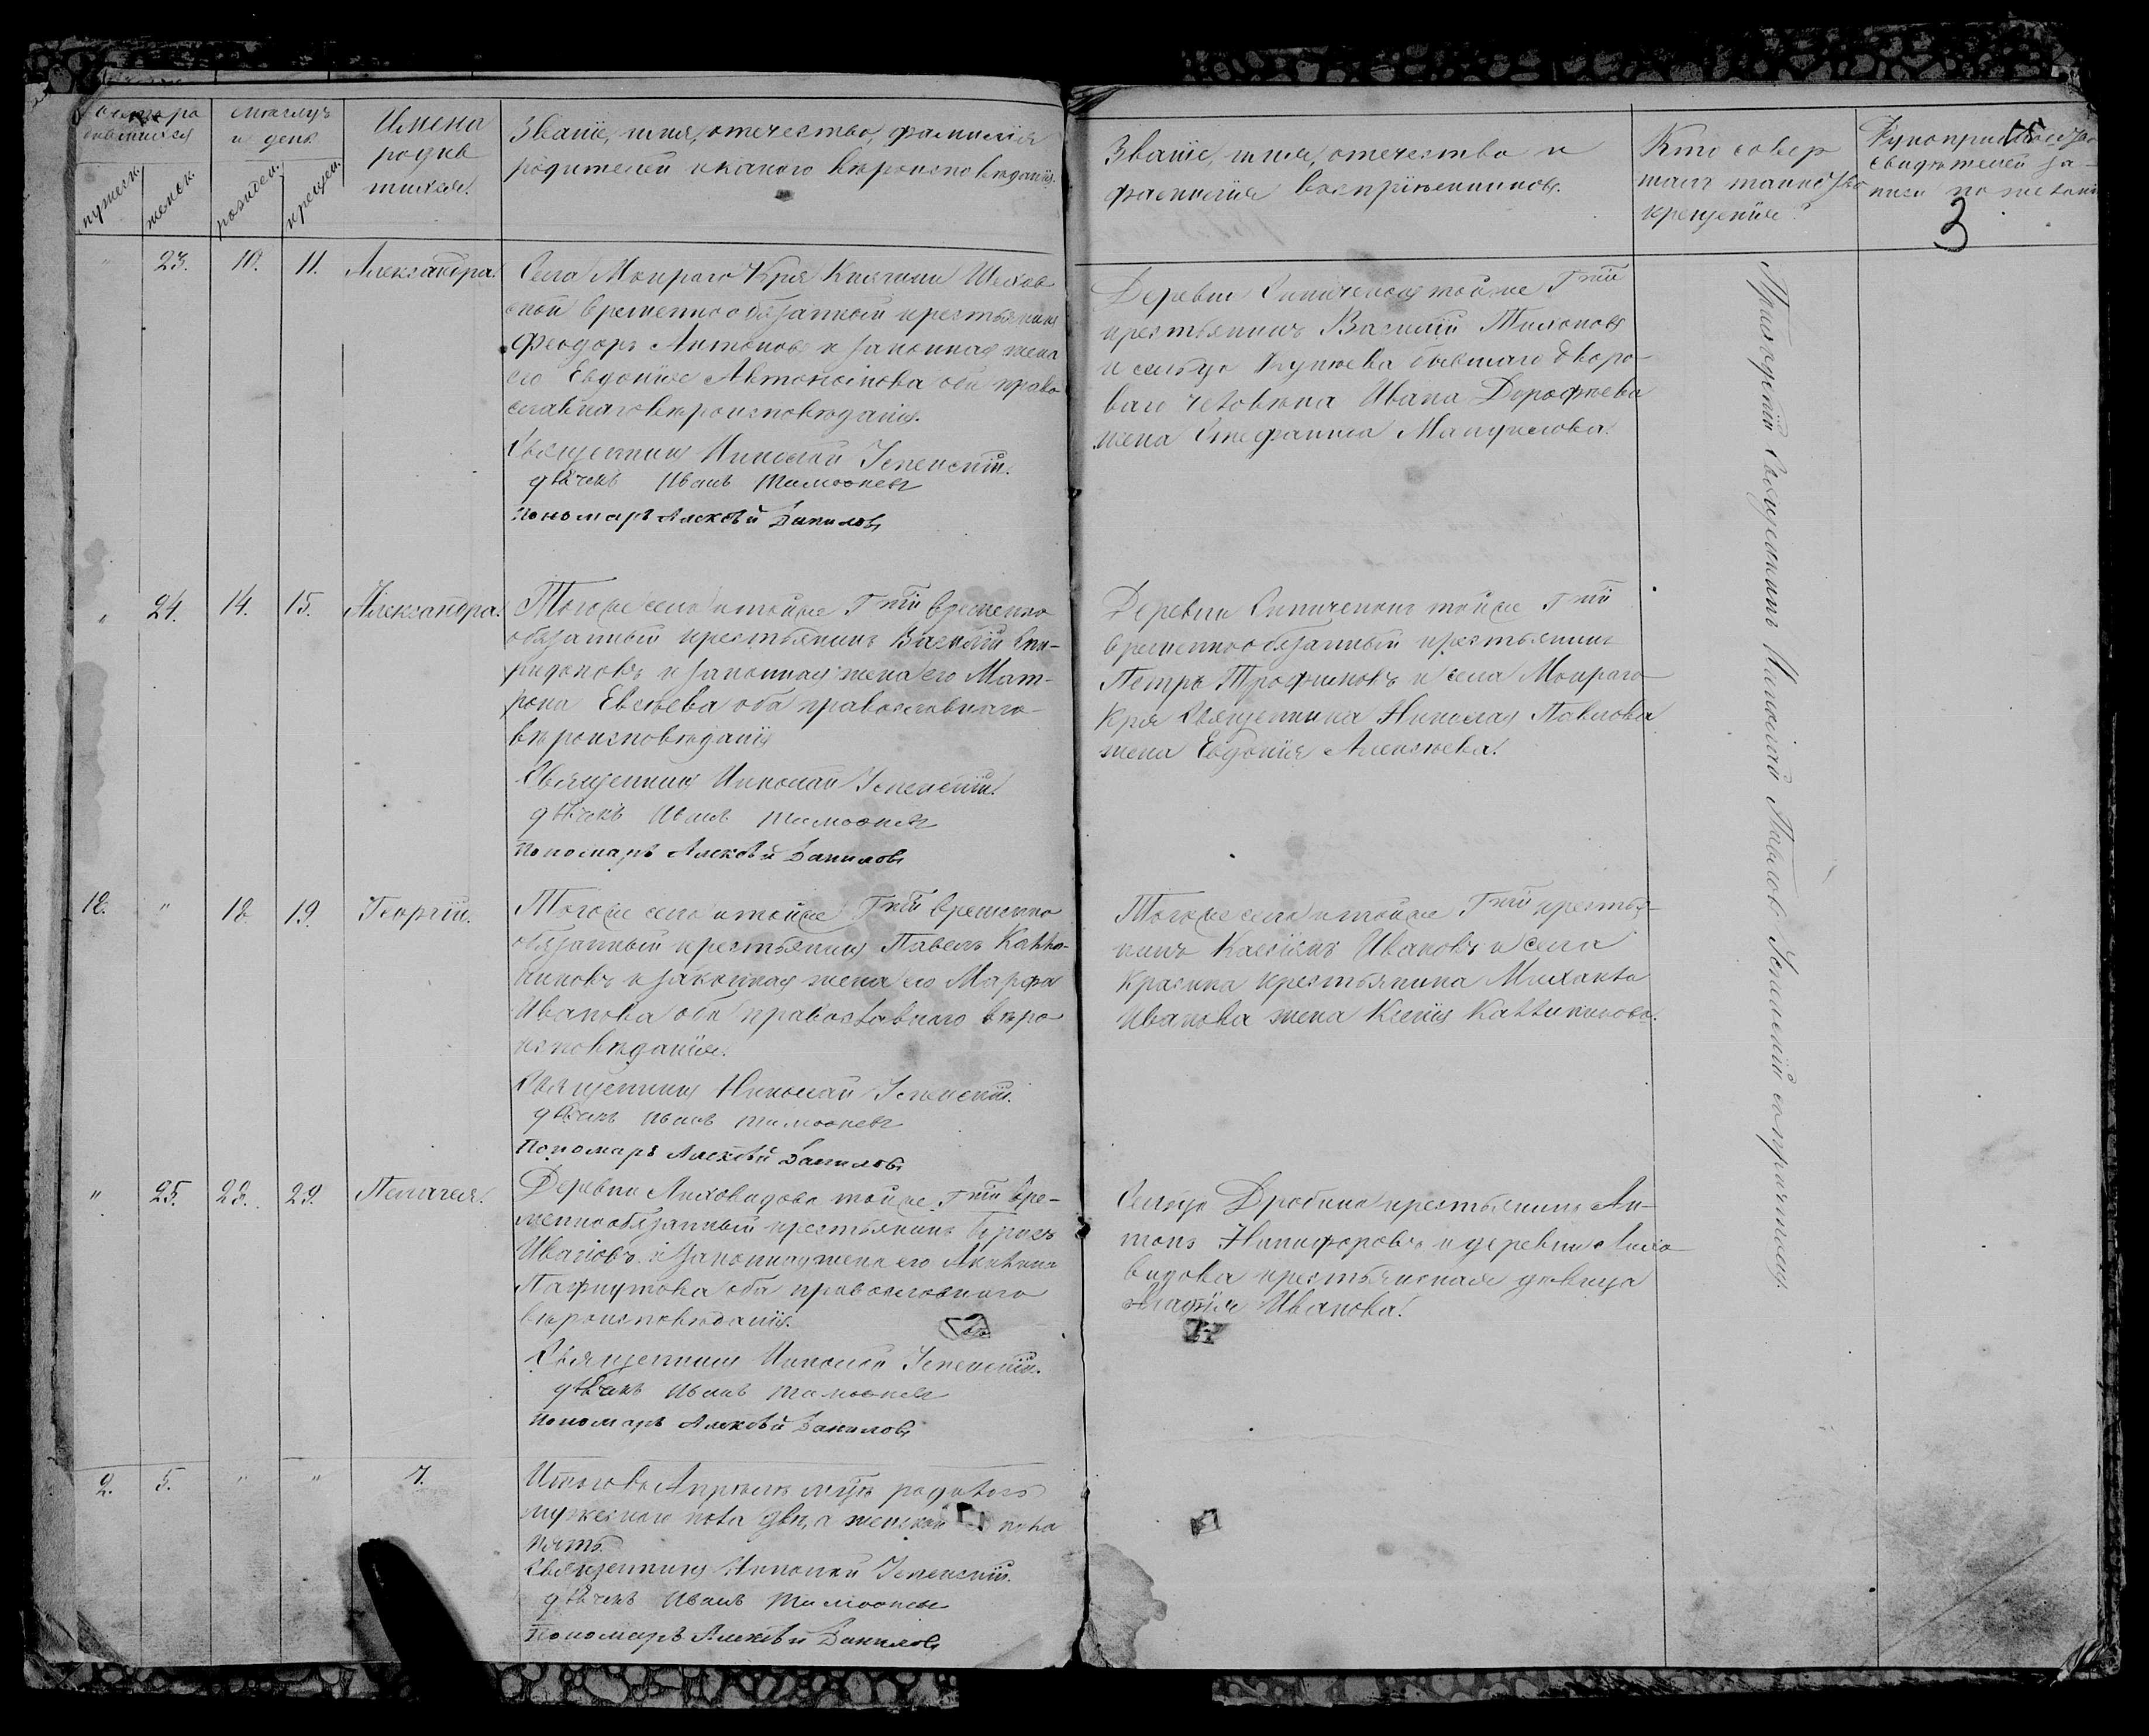 Счетъ ро
дившихся
Мѣсяцъ
и день
Имена
родив
шихся.
Званіе, имя, отечество, фамилія
родителей и какого вѣроисповѣданія.
мужеск.
женск.
рожден.
крещен.
Званіе, имя, отечество и
фамилія воспріемниковъ.
Кто совер
шалъ таинство
крещенія?
Рукоприкладство
свидѣтелей за-
писи по желанію
3
" 23. 10. 11. Александра.
Села Мокраго Кря Княгини Шахов
ской временнообязанный крестьянинъ
Феодоръ Антоновъ и законная жена
его Евдокія Автономова оба право
славнаго вѣроисповѣданія.
Священникъ Николай Успенскій.
дьячекъ Иванъ Тимоѳеевъ
Пономарь Алексѣй Даниловъ
Деревни тойже Гжи
крестьянинъ Василій Тихоновъ
и сельца бывшаго дворо-
ваго человѣка Ивана Дорофѣева
жена Стефанида Мануилова.
" 24. 14. 15. Александра.
Тогоже села и тойже Гжи временно
обязанный крестьянинъ Василій Спи-
ридоновъ и законная жена его Мат-
рона Евсѣева оба православнаго
вѣроисповѣданія
Священникъ Николай Успенскій.
дьячекъ Иванъ Тимоѳеевъ
Пономарь Алексѣй Даниловъ
Деревни тойже Гжи
временнообязанный крестьянинъ
Петръ Трофимовъ и села Мокраго
Кря Священника Николая Павлова
жена Евдокія Алексѣева.
18. " 18. 19. Георгій.
Тогоже села и тойже Гжи временно
обязанный крестьянинъ Павелъ Калли-
никовъ и законная жена его Марфа
Иванова оба православнаго вѣро
исповѣданія.
Священникъ Николай Успенскій.
дьячекъ Иванъ Тимоѳеевъ
Пономарь Алексѣй Даниловъ
Тогоже села и тойже Гжи крестья-
нинъ Кассіанъ Ивановъ и села
крестьянина Михаила
Иванова жена Ксенія Каллиникова.
" 25. 28. 29. Пелагея.
Деревни Лиховидова тойже Гжи вре-
меннообязанный крестьянинъ
Ивановъ и законная жена его Акилина
Пафнутова оба православнаго
вѣроисповѣданія.
Священникъ Николай Успенскій.
дьячекъ Иванъ Тимоѳеевъ
Пономарь Алексѣй Даниловъ
Сельца Дробина крестьянинъ Ан-
тонъ Никифоровъ и деревни Лихо
видова крестьянская дѣвица
Иванова.
2. 5. " " 7.
Итого въ Апрѣлѣ мцѣ родилось
мужескаго пола два, а женскаго пола
пять.
Священникъ Николай Успенскій.
дьячекъ Иванъ Тимоѳеевъ
Пономарь Алексѣй Даниловъ
Приходскій Священникъ Николай Павловъ Успенскій съ причтомъ.